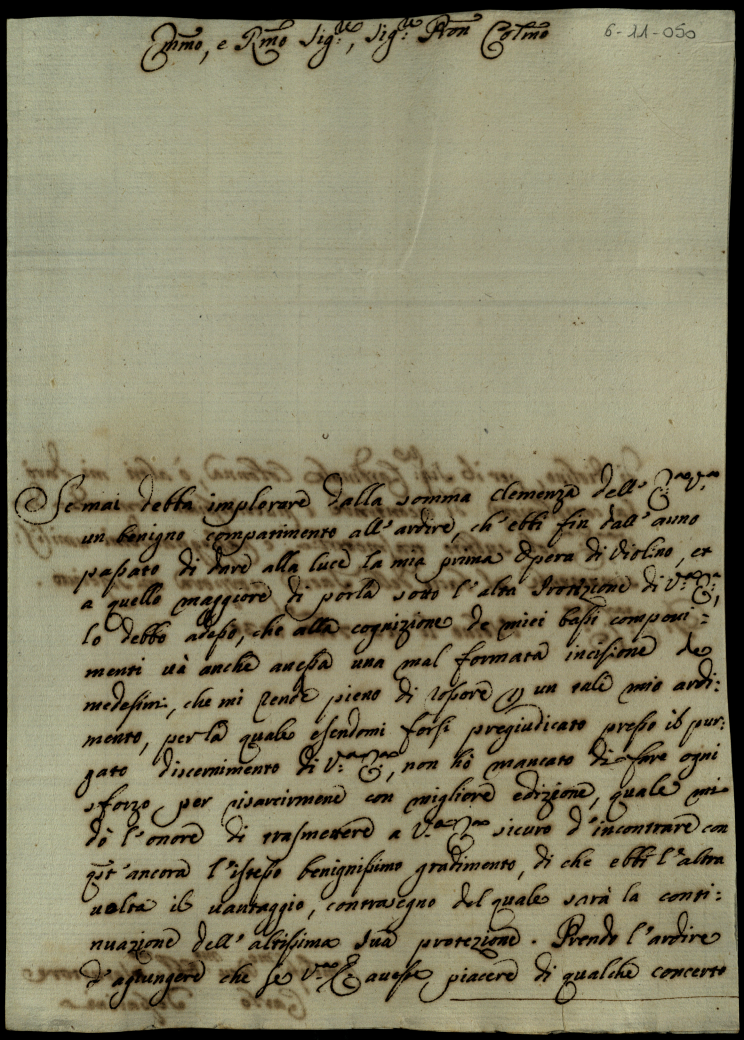 6-11-050
Emmo, e Rmo Sig:re, Sig:re Pron Colmo
Se mai debba implorare dalla somma clemenza dell' E:za V:ra
un benigno compatimento all' ardire, ch' ebbi fin dall' anno
passato di dare alla luce la mia prima Opera di Violino, et
a quello maggiore di porla sotto l'alta Protezione di V:ra E:za,
lo debbo adesso, che alla cognizione de miei bassi componi:
menti và anche anessa una mal formata incisione de
medesimi, che mi rende pieno di rossore p un tale mio ardi:
mento, per la quale essendomi forsi pregiudicato presso il pur:
gato discernimento di V:ra E:za, non hò mancato di fare ogni
sforzo per risarcirmene con migliore edizione, quale mi
dò l'onore di trasmettere a V:ra E:za sicuro d'incontrare con
qst' ancora l'istesso benignissimo gradimento, di che ebbi l'altra
volta il vantaggio, contrasegno del quale sarà la conti:
nuazione dell' altissima sua protezione. Prendo l'ardire
d'agiungere che se V:ra E:za avesse piacere di qualche concerto